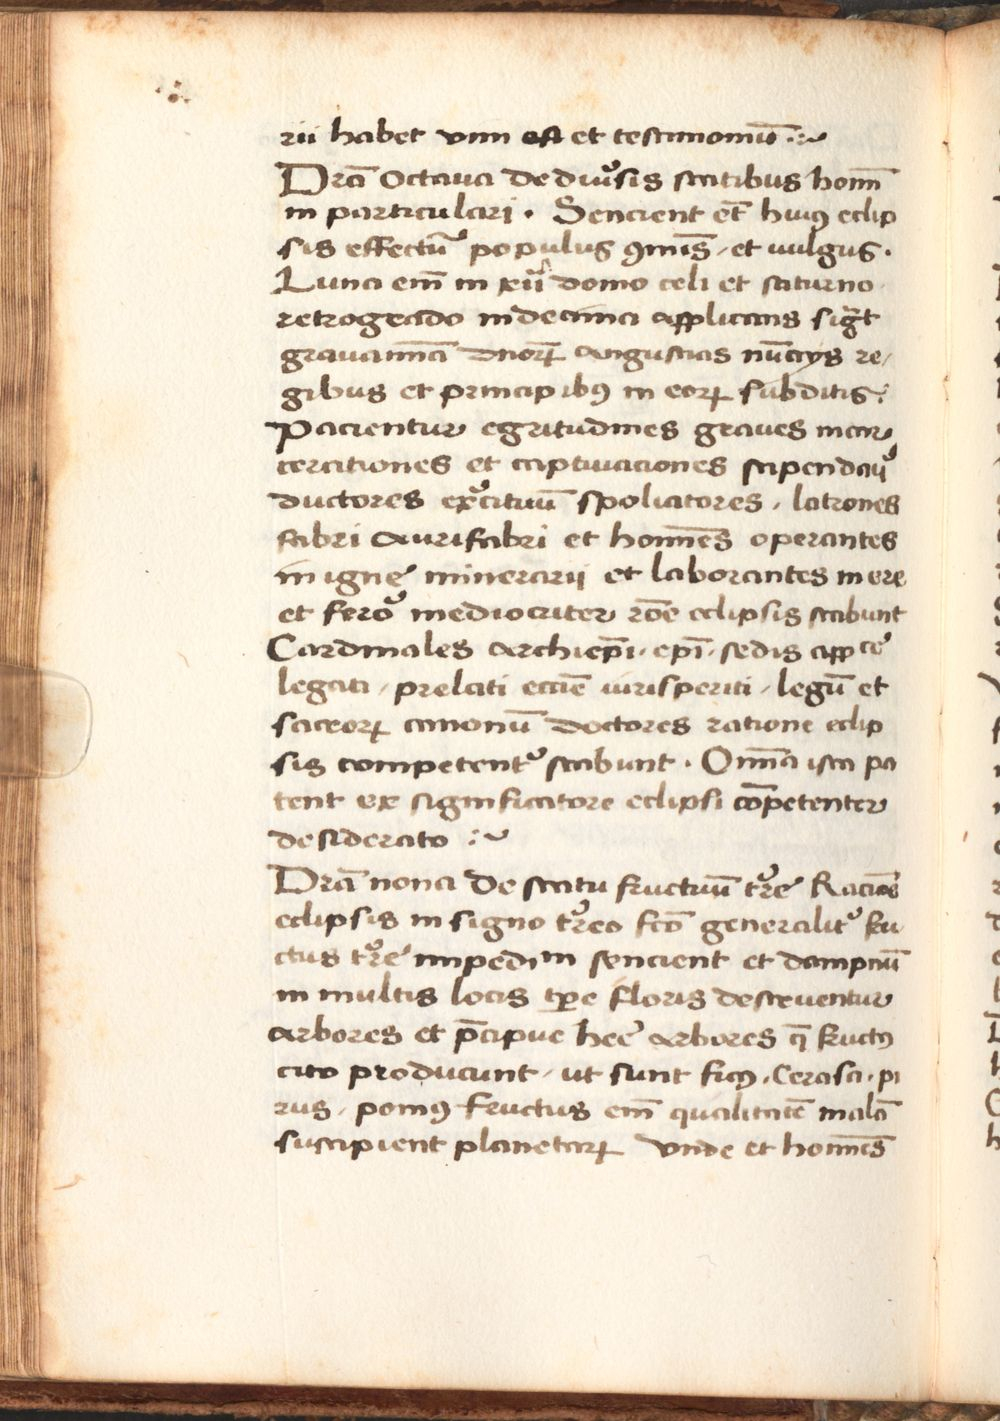 rii habet vim est et testimoniū :~
Dr̄a Octaua De diu͛sis statibus homī
in particulari · Sencient et̄ huiꝰ eclip
sis effectū populus ꝯmīs, et uulgus ·
Luna em̄ in xii domo celi et saturno
retrogrado in decima applicans sigt̄
grauamīa dnorꝝ angustias nūcijs re/
gibus et principibꝰ in eorꝝ subditis :
Pacientur egritudines graues incar
cerationes et captiuaciones stipendarij
ductores ex͛cituū spoliatores, latrones
fabri aurifabri et homīes operantes
in igne minerarij et laborantes in ere
et fero͛ mediocriter rōe eclipsis stabunt
Cardinales archiepī, epī, sedis app ce
legati, prelati ecc̄ie iurisperiti, legū et
sacrorꝝ canonū doctores ratione eclip
sis competent͛ stabunt · Omīa ista pa
tent ex significatore eclipsi cōpetenter
desiderato :~
Dr̄a nona De statu fructuū t͛re Racioē
eclipsis in signo t͛reo fcō generalit͛ fru
ctus t͛re impedim sencient et dampnū
in multis locis tꝑe floris destruentur
arbores et p̄cipue hee arbores q̄ fructꝰ
cito producunt, ut sunt ficꝰ, Cerasa, pi
rus, pomꝰ Fructus em̄ qualitatē malā
suscipient planetarꝝ Vnde et homīes